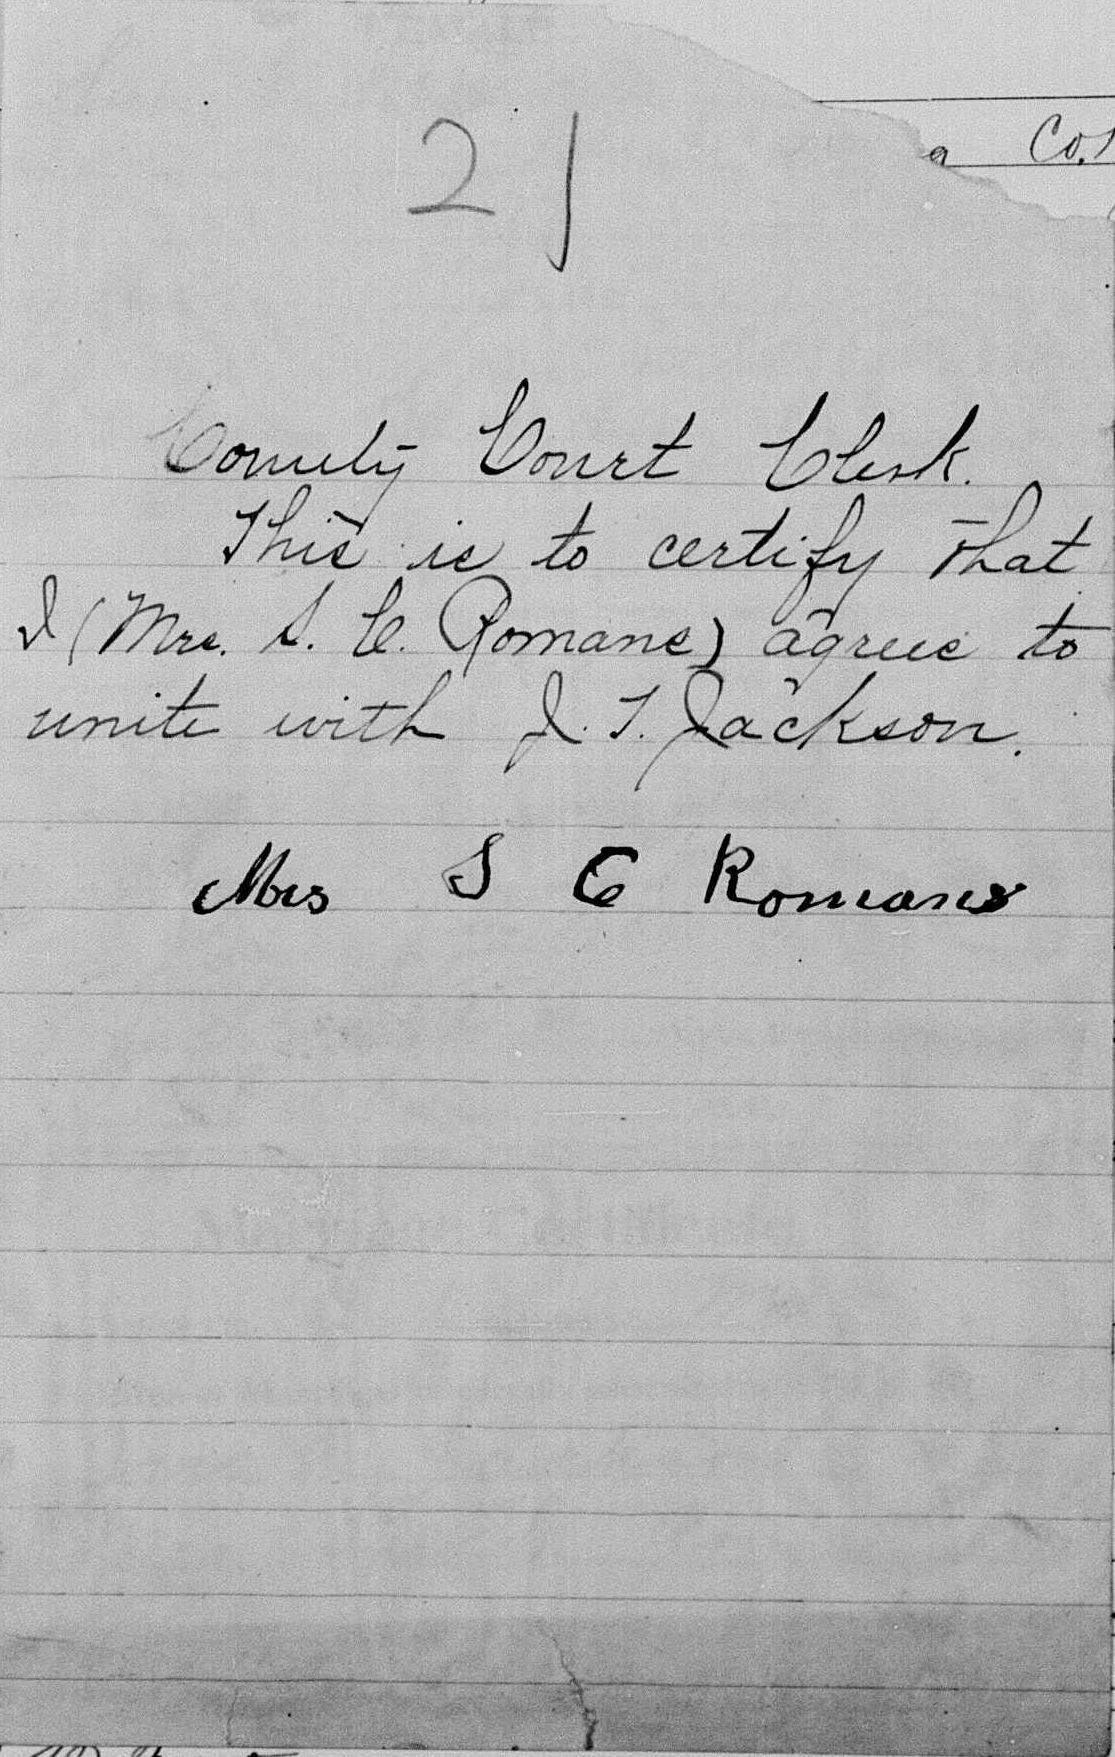 Co.
21
County Court Clerk.
This is to certify that
I (Mrs. S. C. Romans) agree to
unite with J. T. Jackson.
Mrs S C Romans